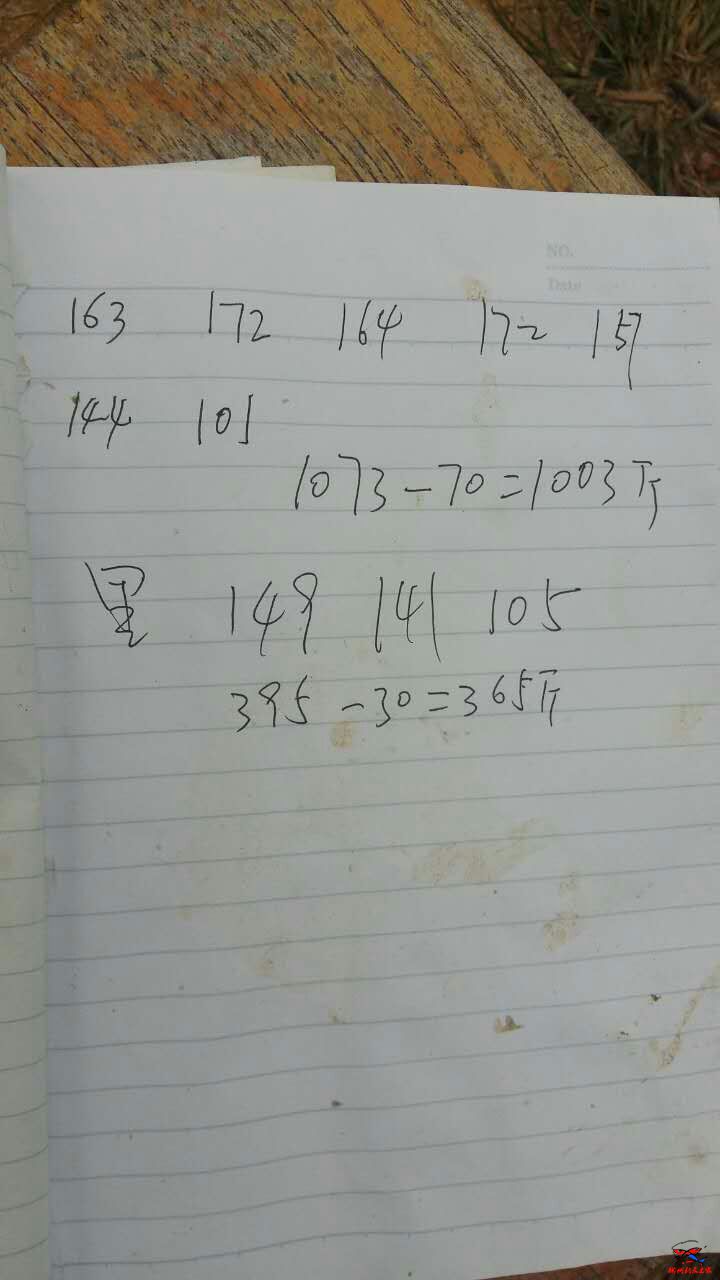 NO.
Date
163 172 164 172 157
144 101
1073-70=1003斤
149 141 105
395-30=365斤